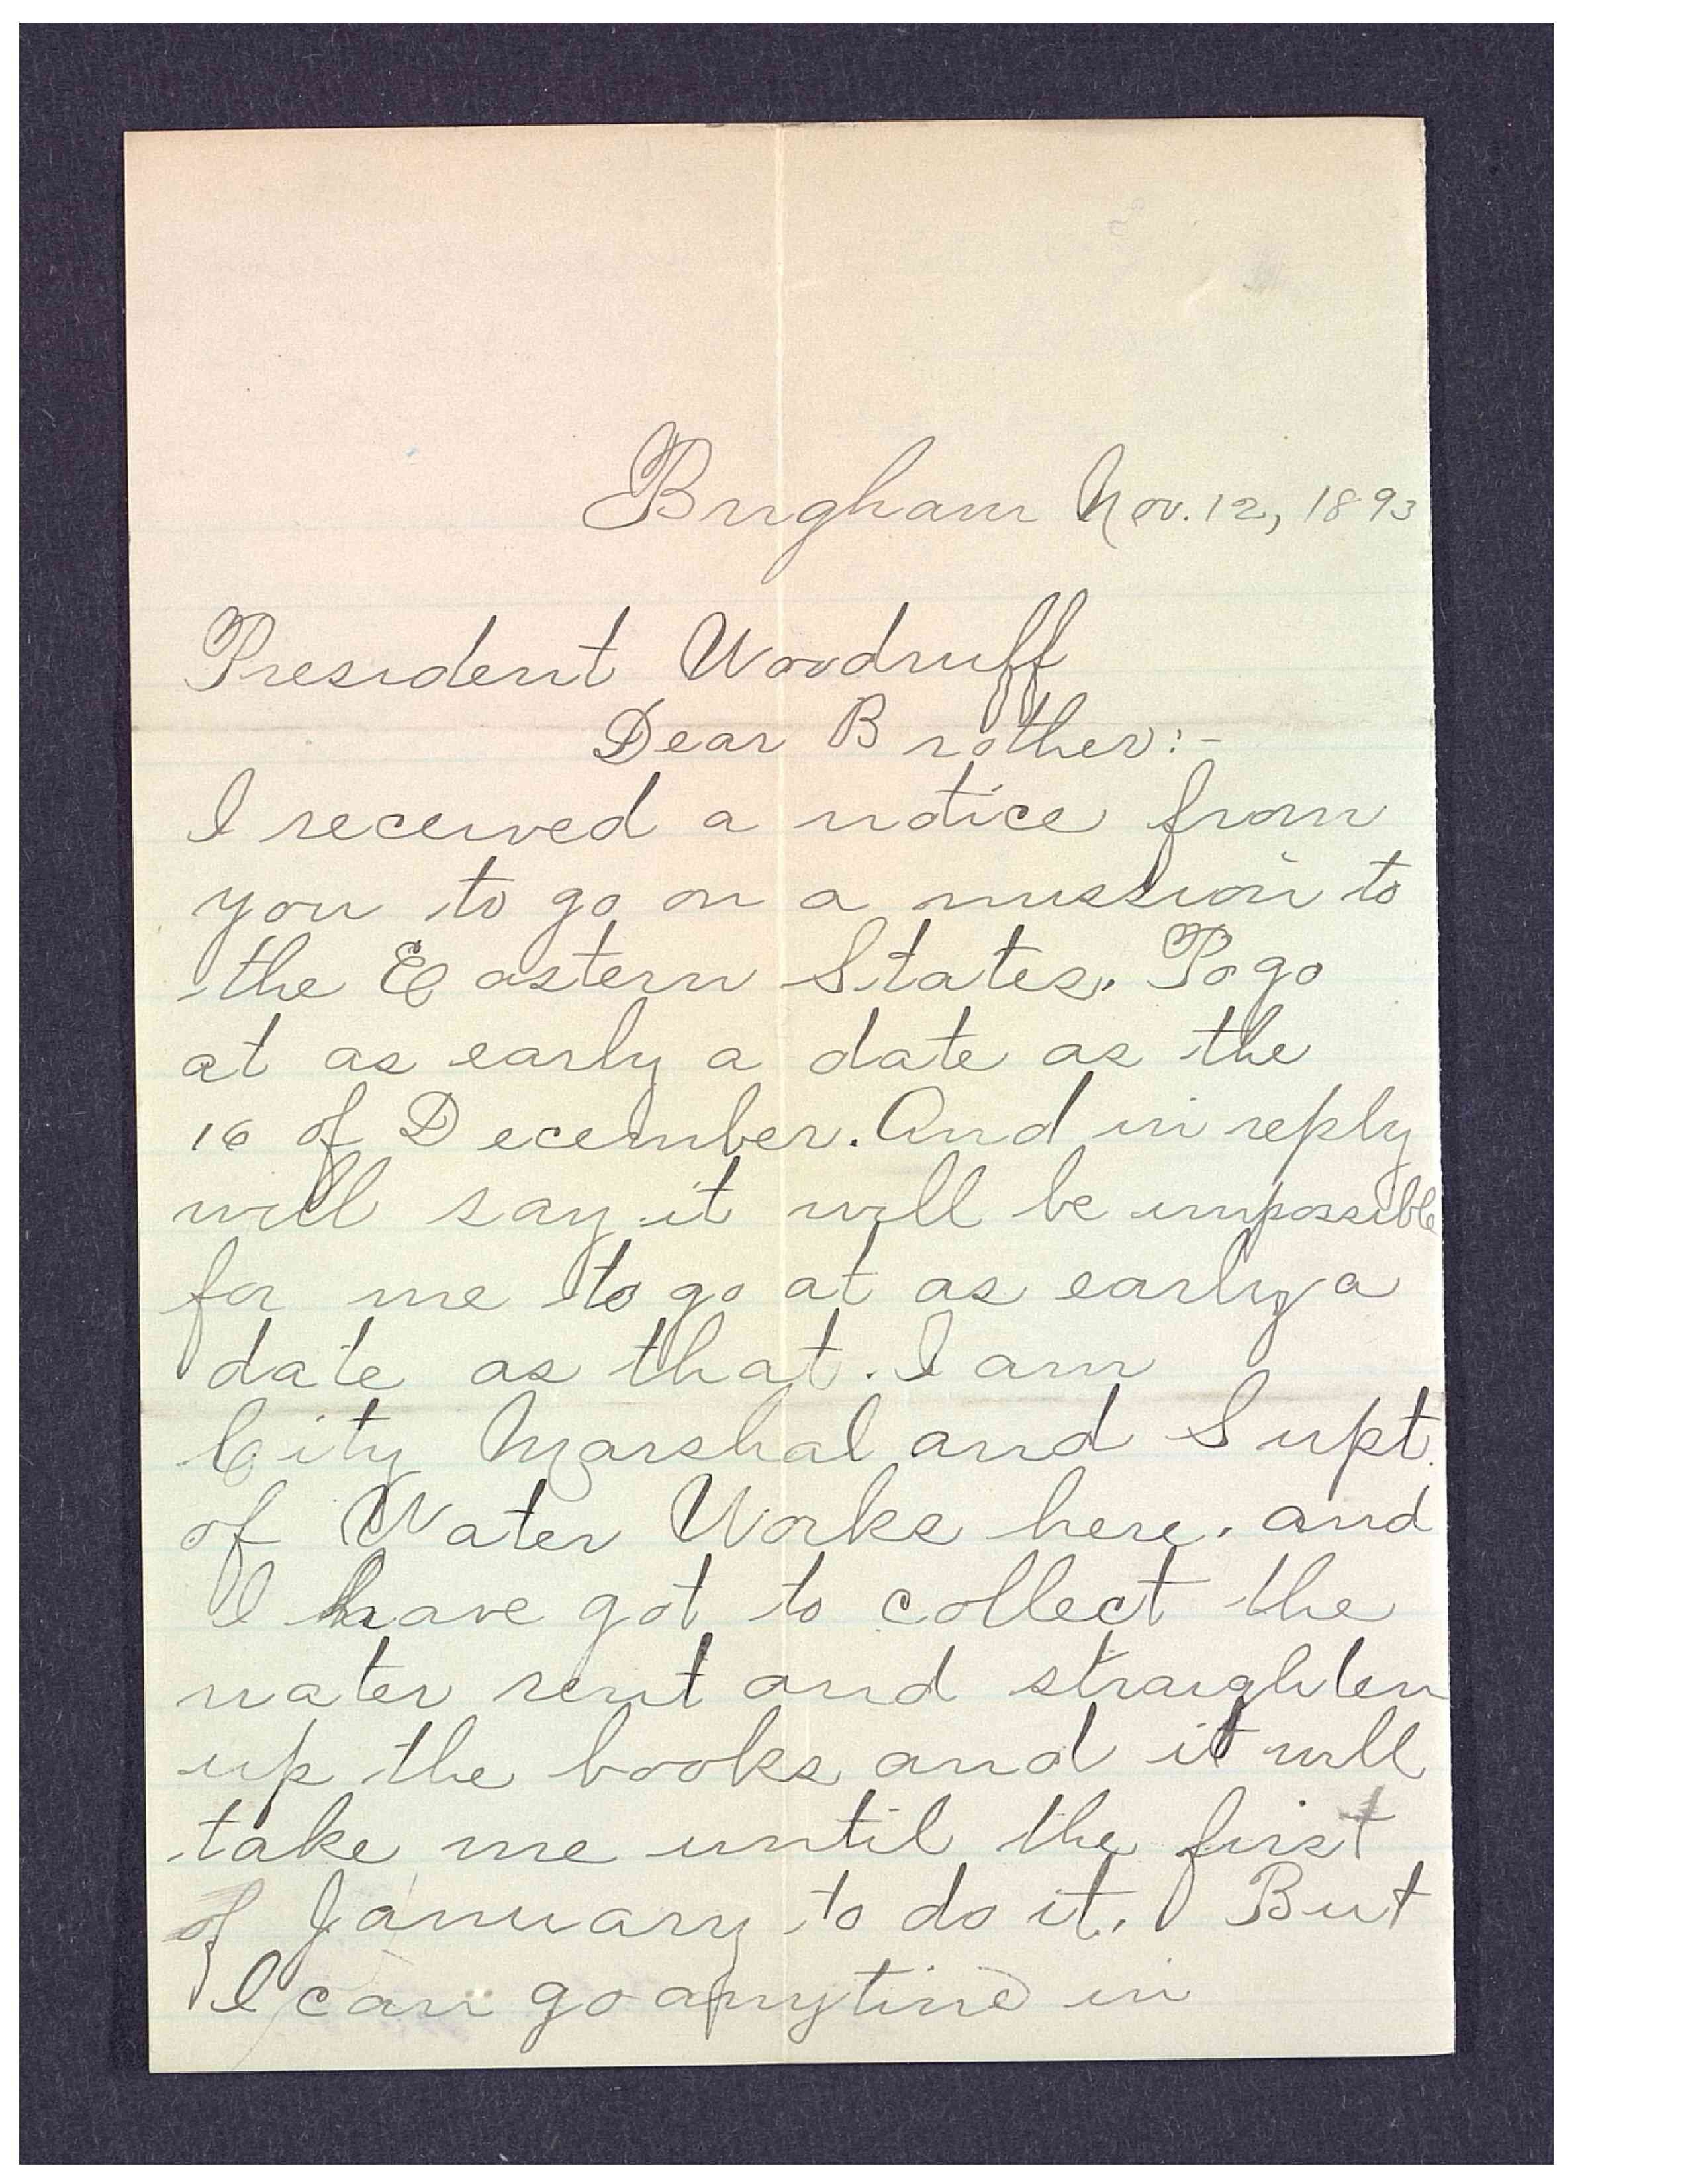 Brigham Nov. 12, 1893
President Woodruff
Dear Brother:-
I received a notice from
you to go on a mission to
the Eastern States. To go
at as early a date as the
16 of December. And in reply
will say it will be impossible
for me to go at as early a
date as that. I am
City Marshal and Supt.
of Water Works here. and
I have got to collect the
water rent and straighten
up the books and it will
take me until the first
of January to do it. But
I can go anytime in